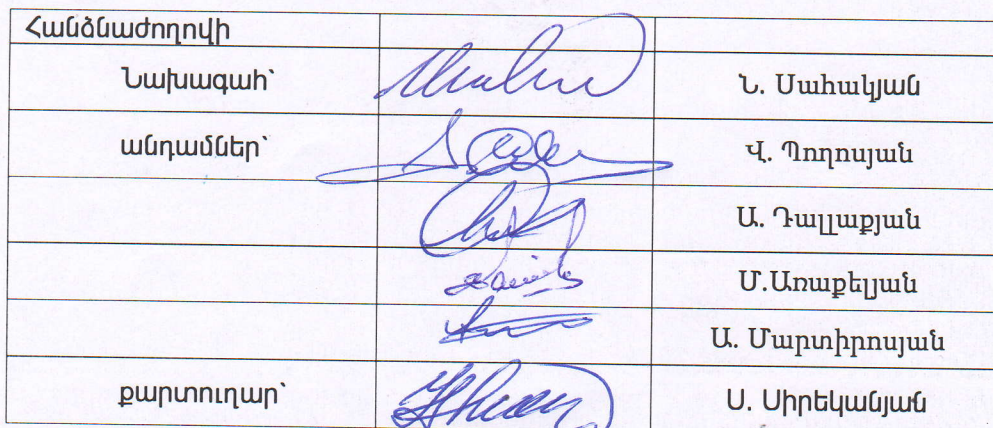 Հանձնաժողովի
Նախագահ՝ Ն. Սահակյան
անդամներ՝ Վ. Պողոսյան
Ա. Դալլաքյան
Մ.Առաքելյան
Ա. Մարտիրոսյան
քարտուղար՝ Ս. Սիրեկանյան